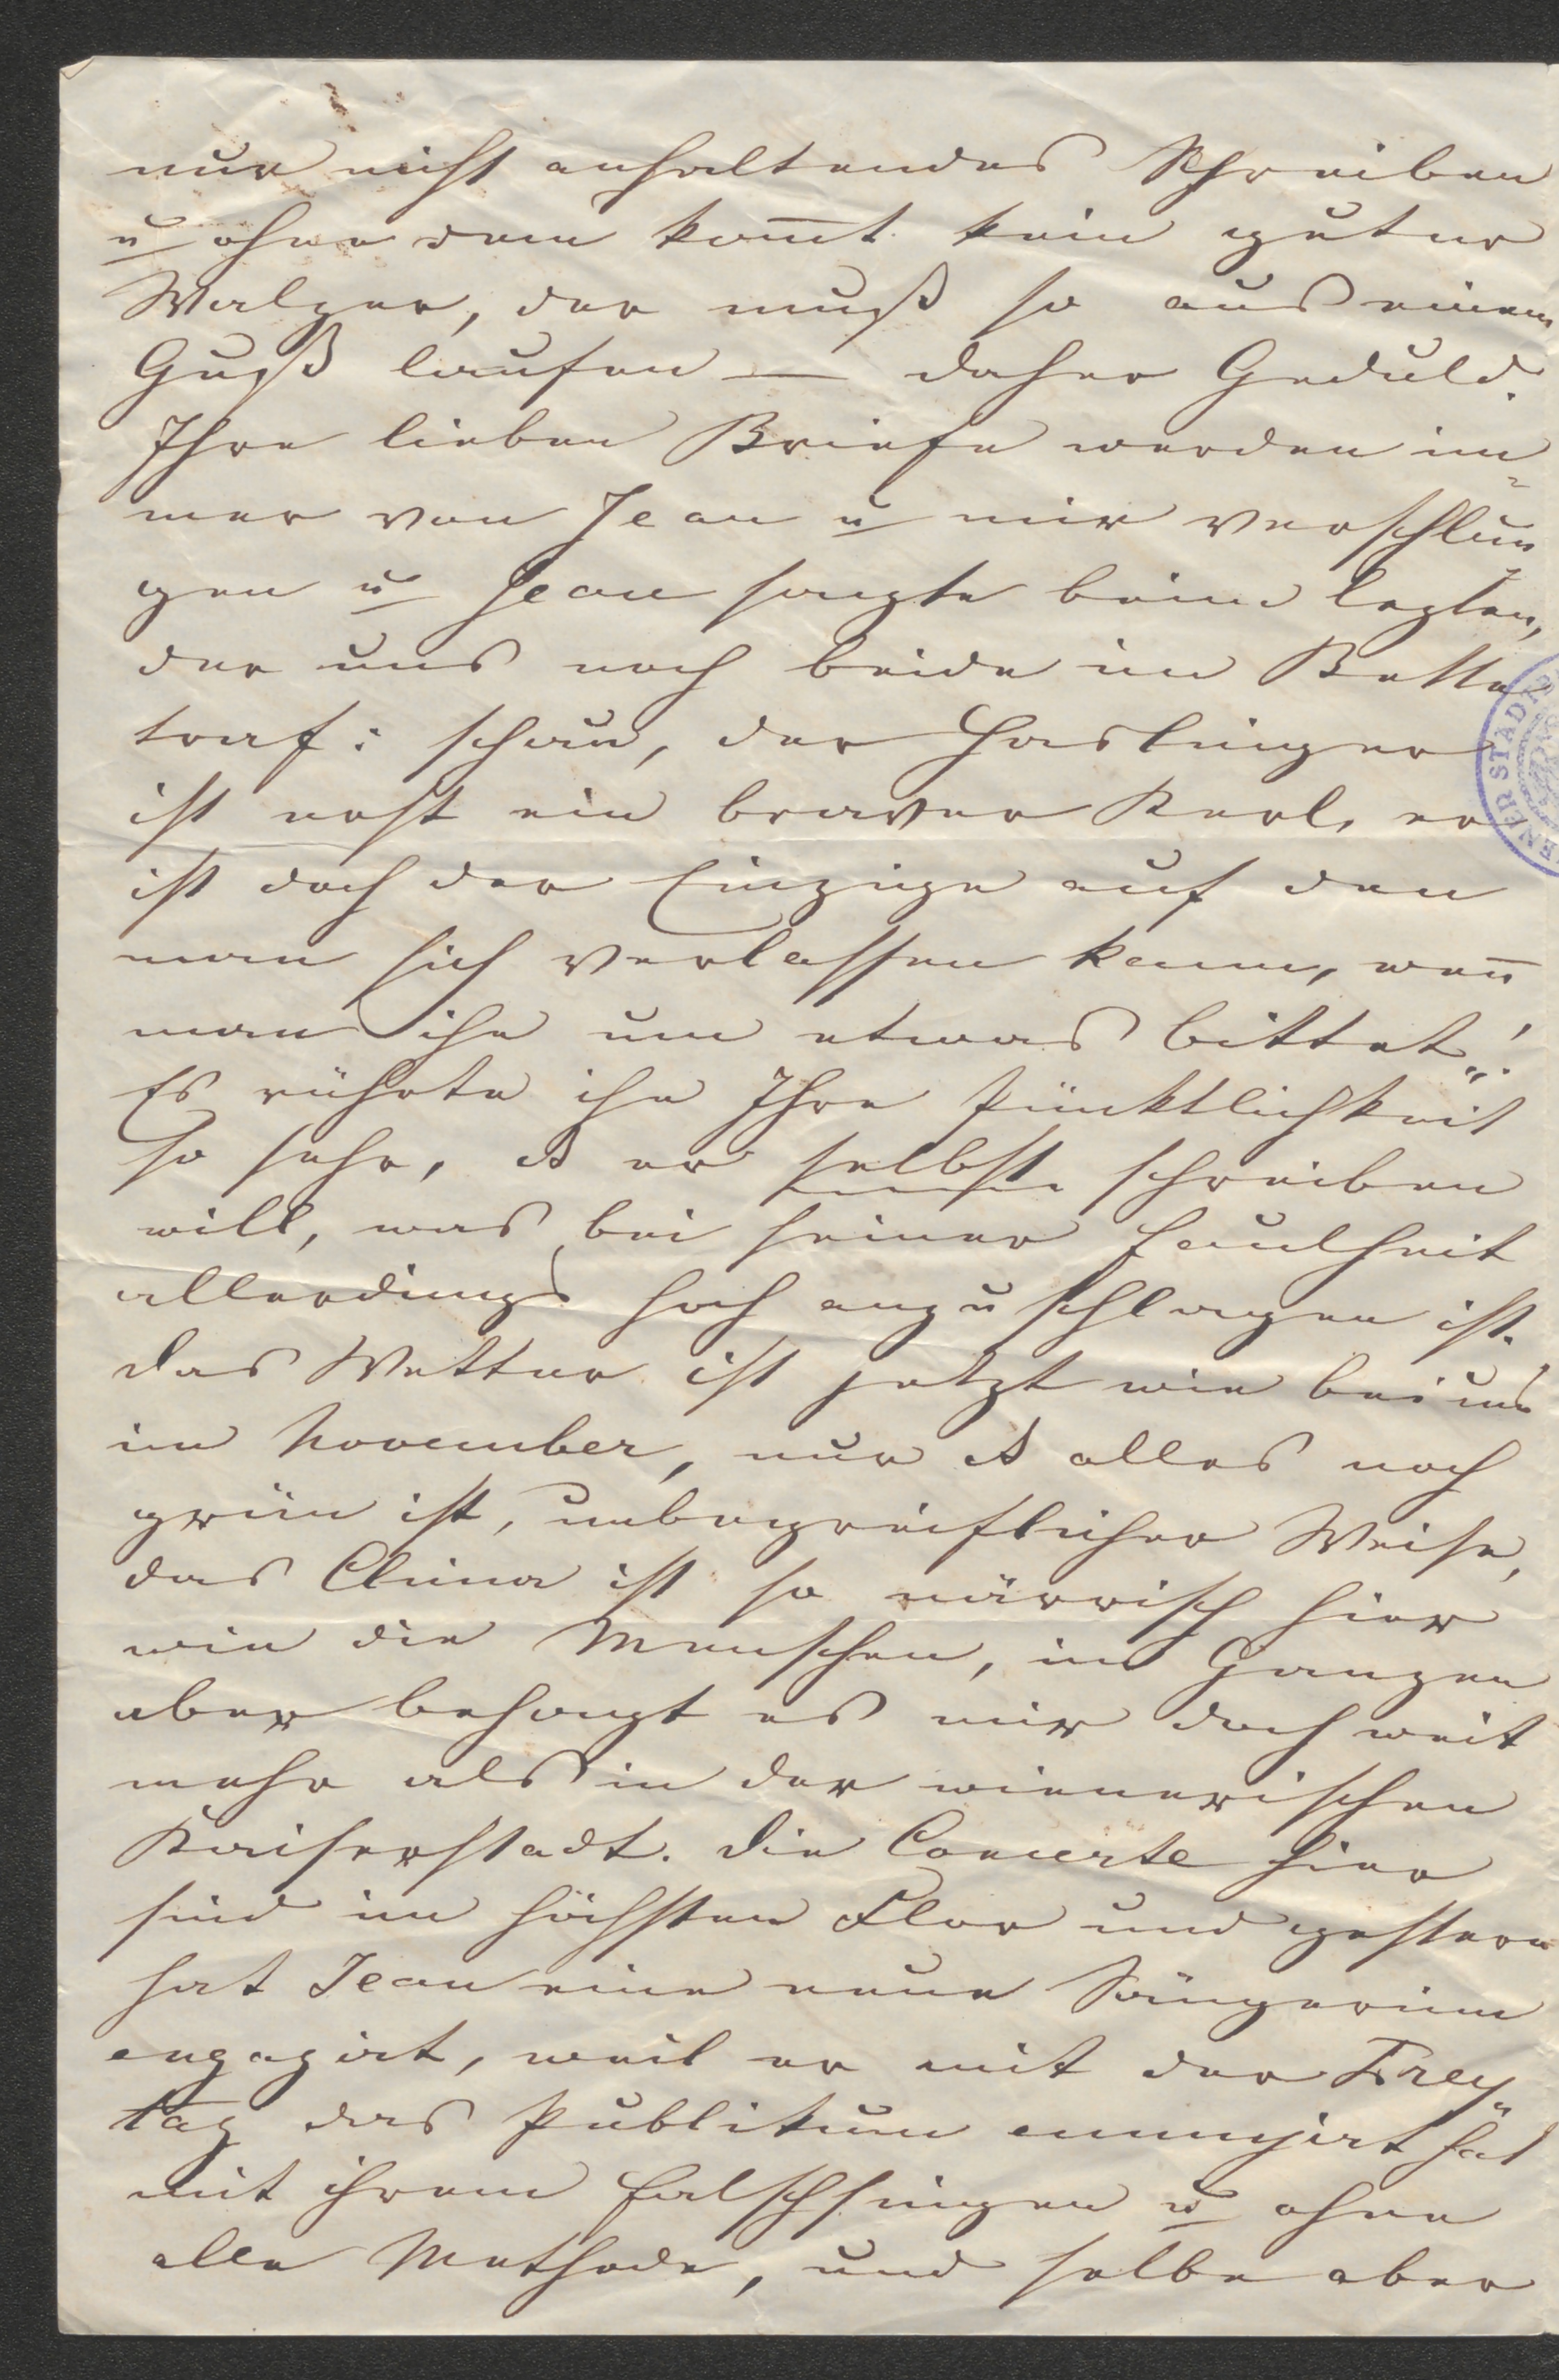 nur nicht anhaltendes Schreiben
u ohne dem kom̄t kein guter
Walzer, der muß so aus einem
Guß laufen — daher Geduld.
Ihre lieben Briefe werden im=
mer von Jean u mir verschlun
gen u Jean sagte beim lezten,
der uns noch beide im Bette
traf: schau, der Haslinger
ist erst ein braver Kerl, er
ist doch der Einzige auf den
man sich verlassen kann, wen̄
man ihn um etwas bittet!"
Es rührte ihn Ihre Pünktlichkeit
so sehr, ds er selbst schreiben
will, was bei seiner Faulheit
allerdings hoch anzuschlagen ist.
das Wetter ist jetzt wie bei uns
im November, nur ds alles noch
grün ist, unbegreiflicher Weise,
das Clima ist so närrisch hier
wie die Menschen, im Ganzen
aber behagt es mir doch weit
mehr als in der wienerischen
Kaiserstadt. Die Concerte hier
sind im höchsten Flor und gestern
hat Jean eine neue Sängerinn
engagirt, weil er mit der Frey=
tag das Publikum ennuyirt hat
mit ihrem Falschsingen u ohne
alle Methode, und selbe aber
ENER STADT